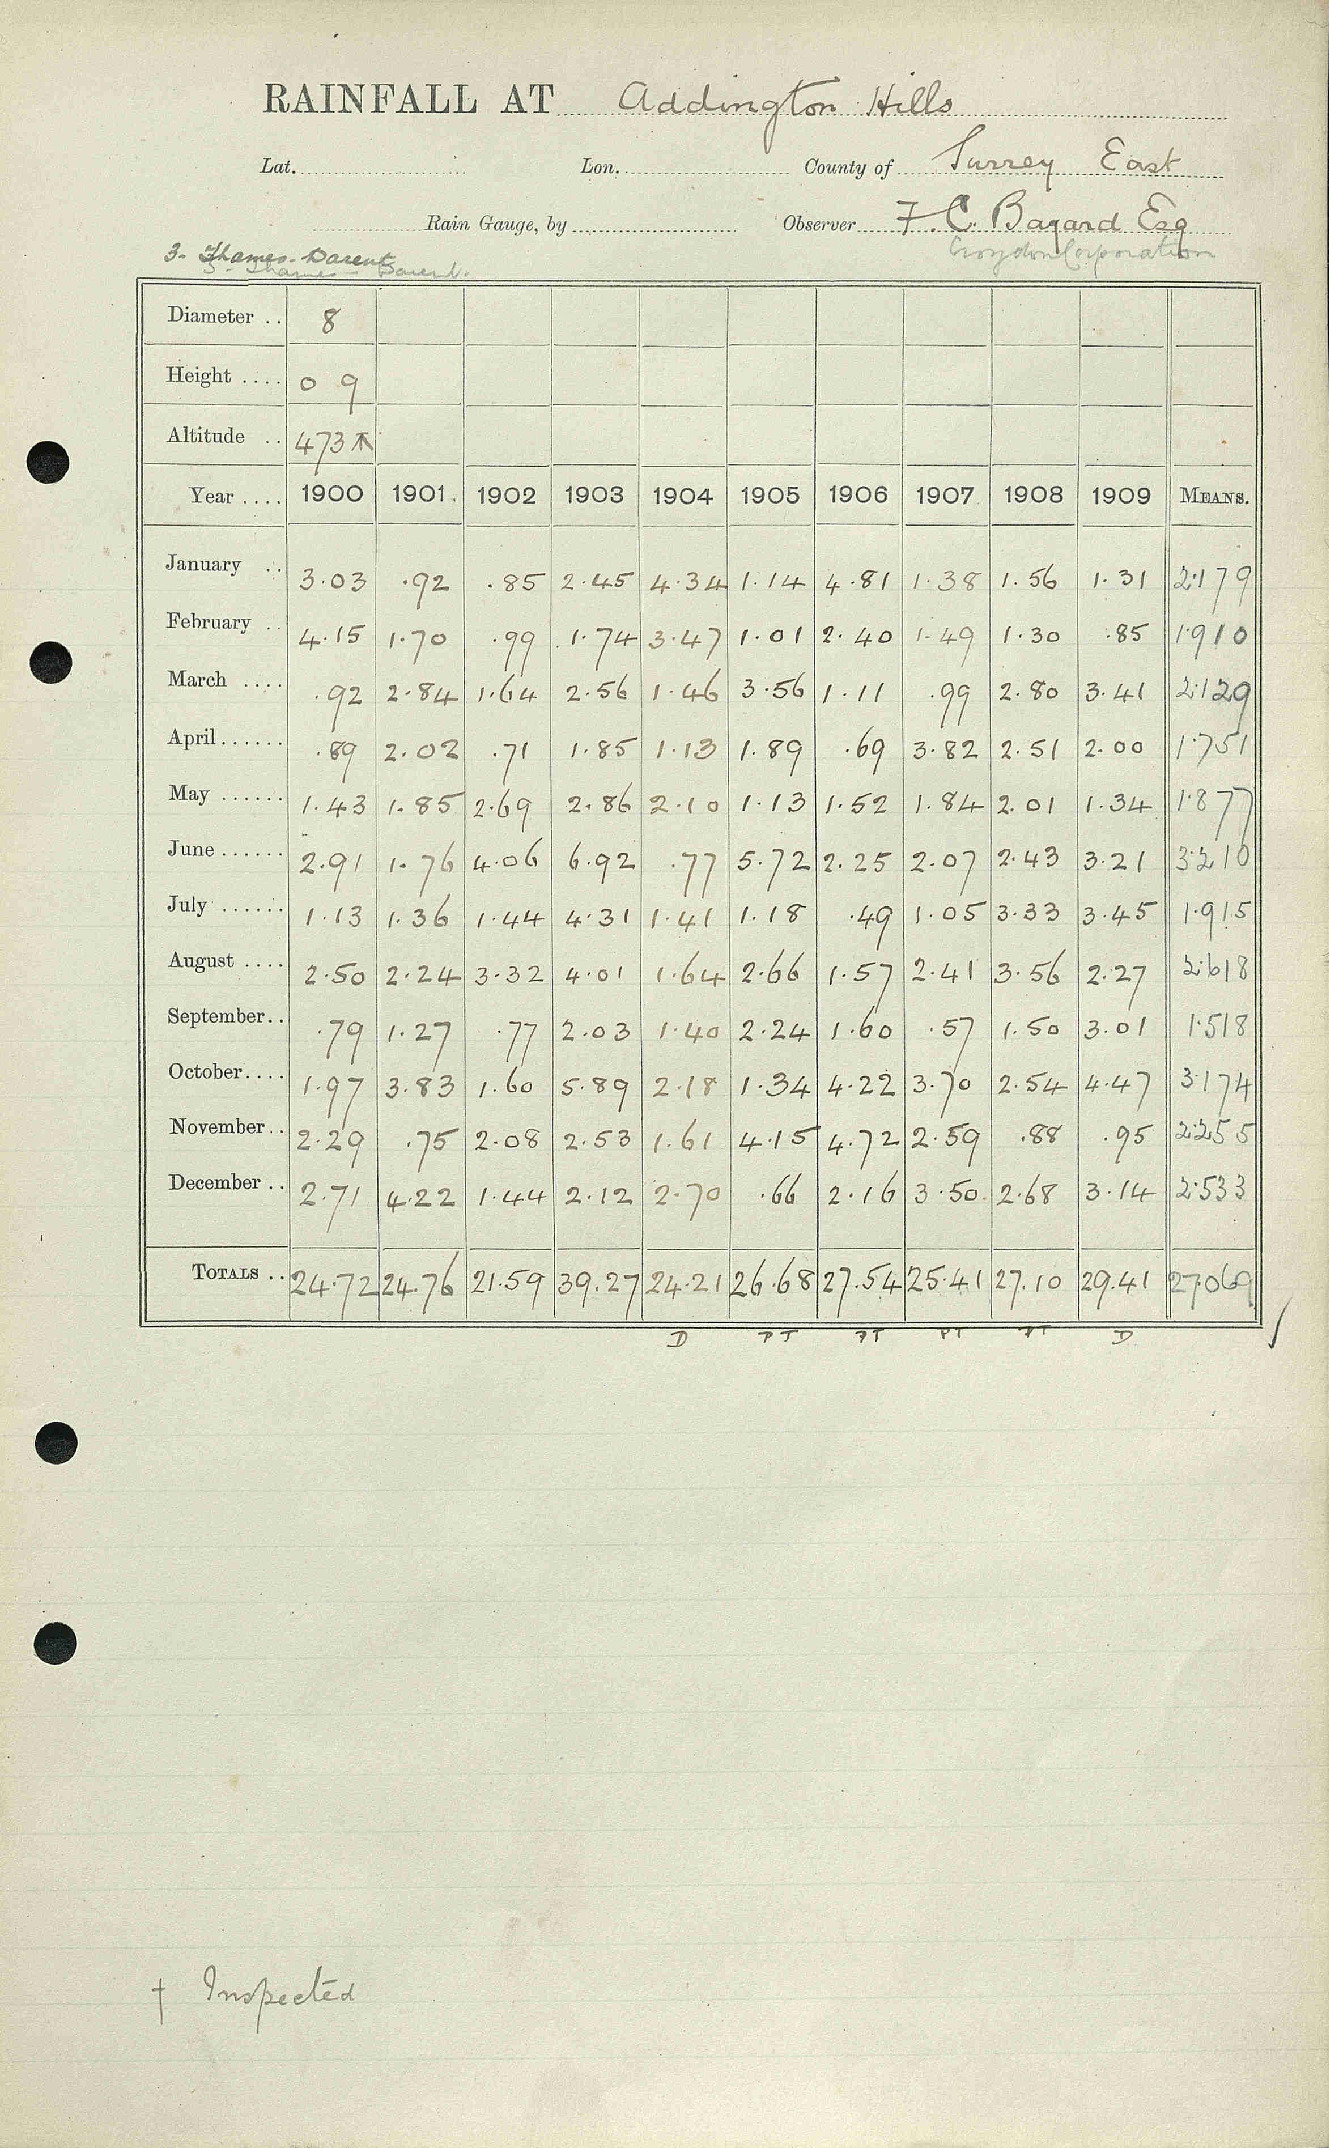 RAINFALL AT Addington Hills
Lat. Lon. County of Surrey East
Rain Gauge, by Observer F. C. Bagard Esq
3. Thames-Darent Croydon Corporation
3. Thames - Darent.
Diameter .. 8
Height .... 0 9
Altitude .. 473
Year .... 1900 1901. 1902 1903 1904 1905 1906 1907 1908 1909 MEANS.
January .. 3.03 .92 .85 2.45 4.34 1.14 4.81 1.38 1.56 1.31 2.179
February .. 4.15 1.70 .99 1.74 3.47 1.01 2.40 1.49 1.30 .85 1.910
March .... .92 2.84 1.64 2.56 1.46 3.56 1.11 .99 2.80 3.41 2.129
April ...... .89 2.02 .71 1.85 1.13 1.89 .69 3.82 2.51 2.00 1.751
May ...... 1.43 1.85 2.69 2.86 2.10 1.13 1.52 1.84 2.01 1.34 1.877
June ...... 2.91 1.76 4.06 6.92 .77 5.72 2.25 2.07 2.43 3.21 3.210
July ...... 1.13 1.36 1.44 4.31 1.41 1.18 .49 1.05 3.33 3.45 1.915
August .... 2.50 2.24 3.32 4.01 1.64 2.66 1.57 2.41 3.56 2.27 2.618
September.. .79 1.27 .77 2.03 1.40 2.24 1.60 .57 1.50 3.01 1.518
October.... 1.97 3.83 1.60 5.89 2.18 1.34 4.22 3.70 2.54 4.47 3.174
November.. 2.29 .75 2.08 2.53 1.61 4.15 4.72 2.59 .88 .95 2.255
December .. 2.71 4.22 1.44 2.12 2.70 .66 2.16 3.50 2.68 3.14 2.533
TOTALS .. 24.72 24.76 21.59 39.27 24.21 26.68 27.54 25.41 27.10 29.41 27.069
D PT PT PT PT D
† Inspected